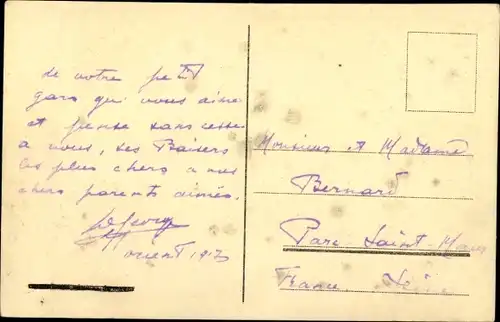 de votre petit
gars qui vous aime
et pense sans cesse
a vous, ses Baisers
les plus chers a nos
chers parents aimés.
orient 1917
Monsieur et Madame
Bernard
Parc Saint-Maur
France. Seine